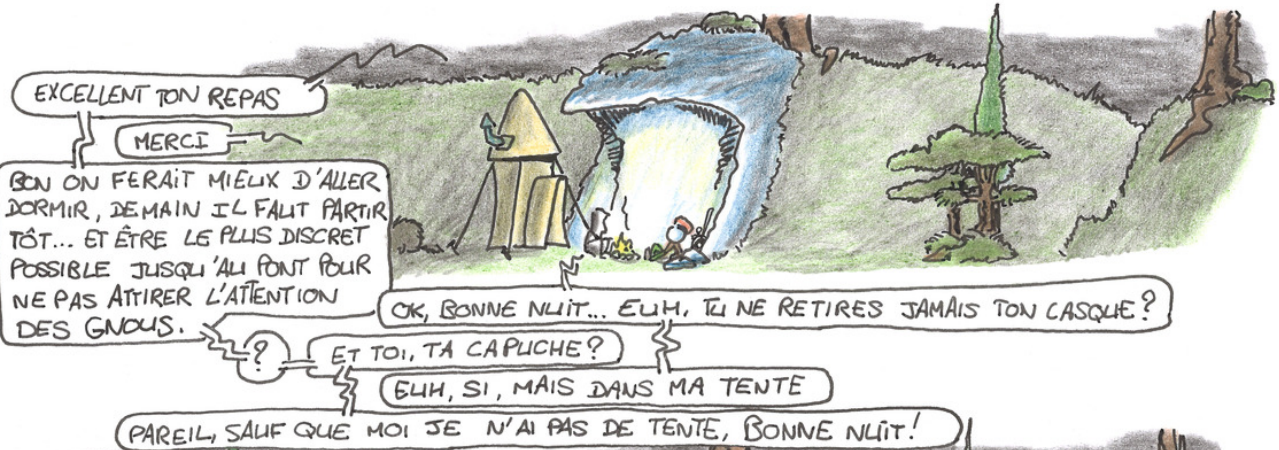 EXCELLENT TON REPAS
MERCI
BON ON FERAIT MIEUX D'ALLER
DORMIR, DEMAIN IL FAUT PARTIR
TÔT... ET ÊTRE LE PLUS DISCRET
POSSIBLE JUSQU'AU PONT POUR
NE PAS ATTIRER L'ATTENTION
DES GNOUS.
OK, BONNE NUIT... EUH, TU NE RETIRES JAMAIS TON CASQUE?
?
ET TOI, TA CAPUCHE?
EUH, SI, MAIS DANS MA TENTE
PAREIL, SAUF QUE MOI JE N'AI PAS DE TENTE, BONNE NUIT!